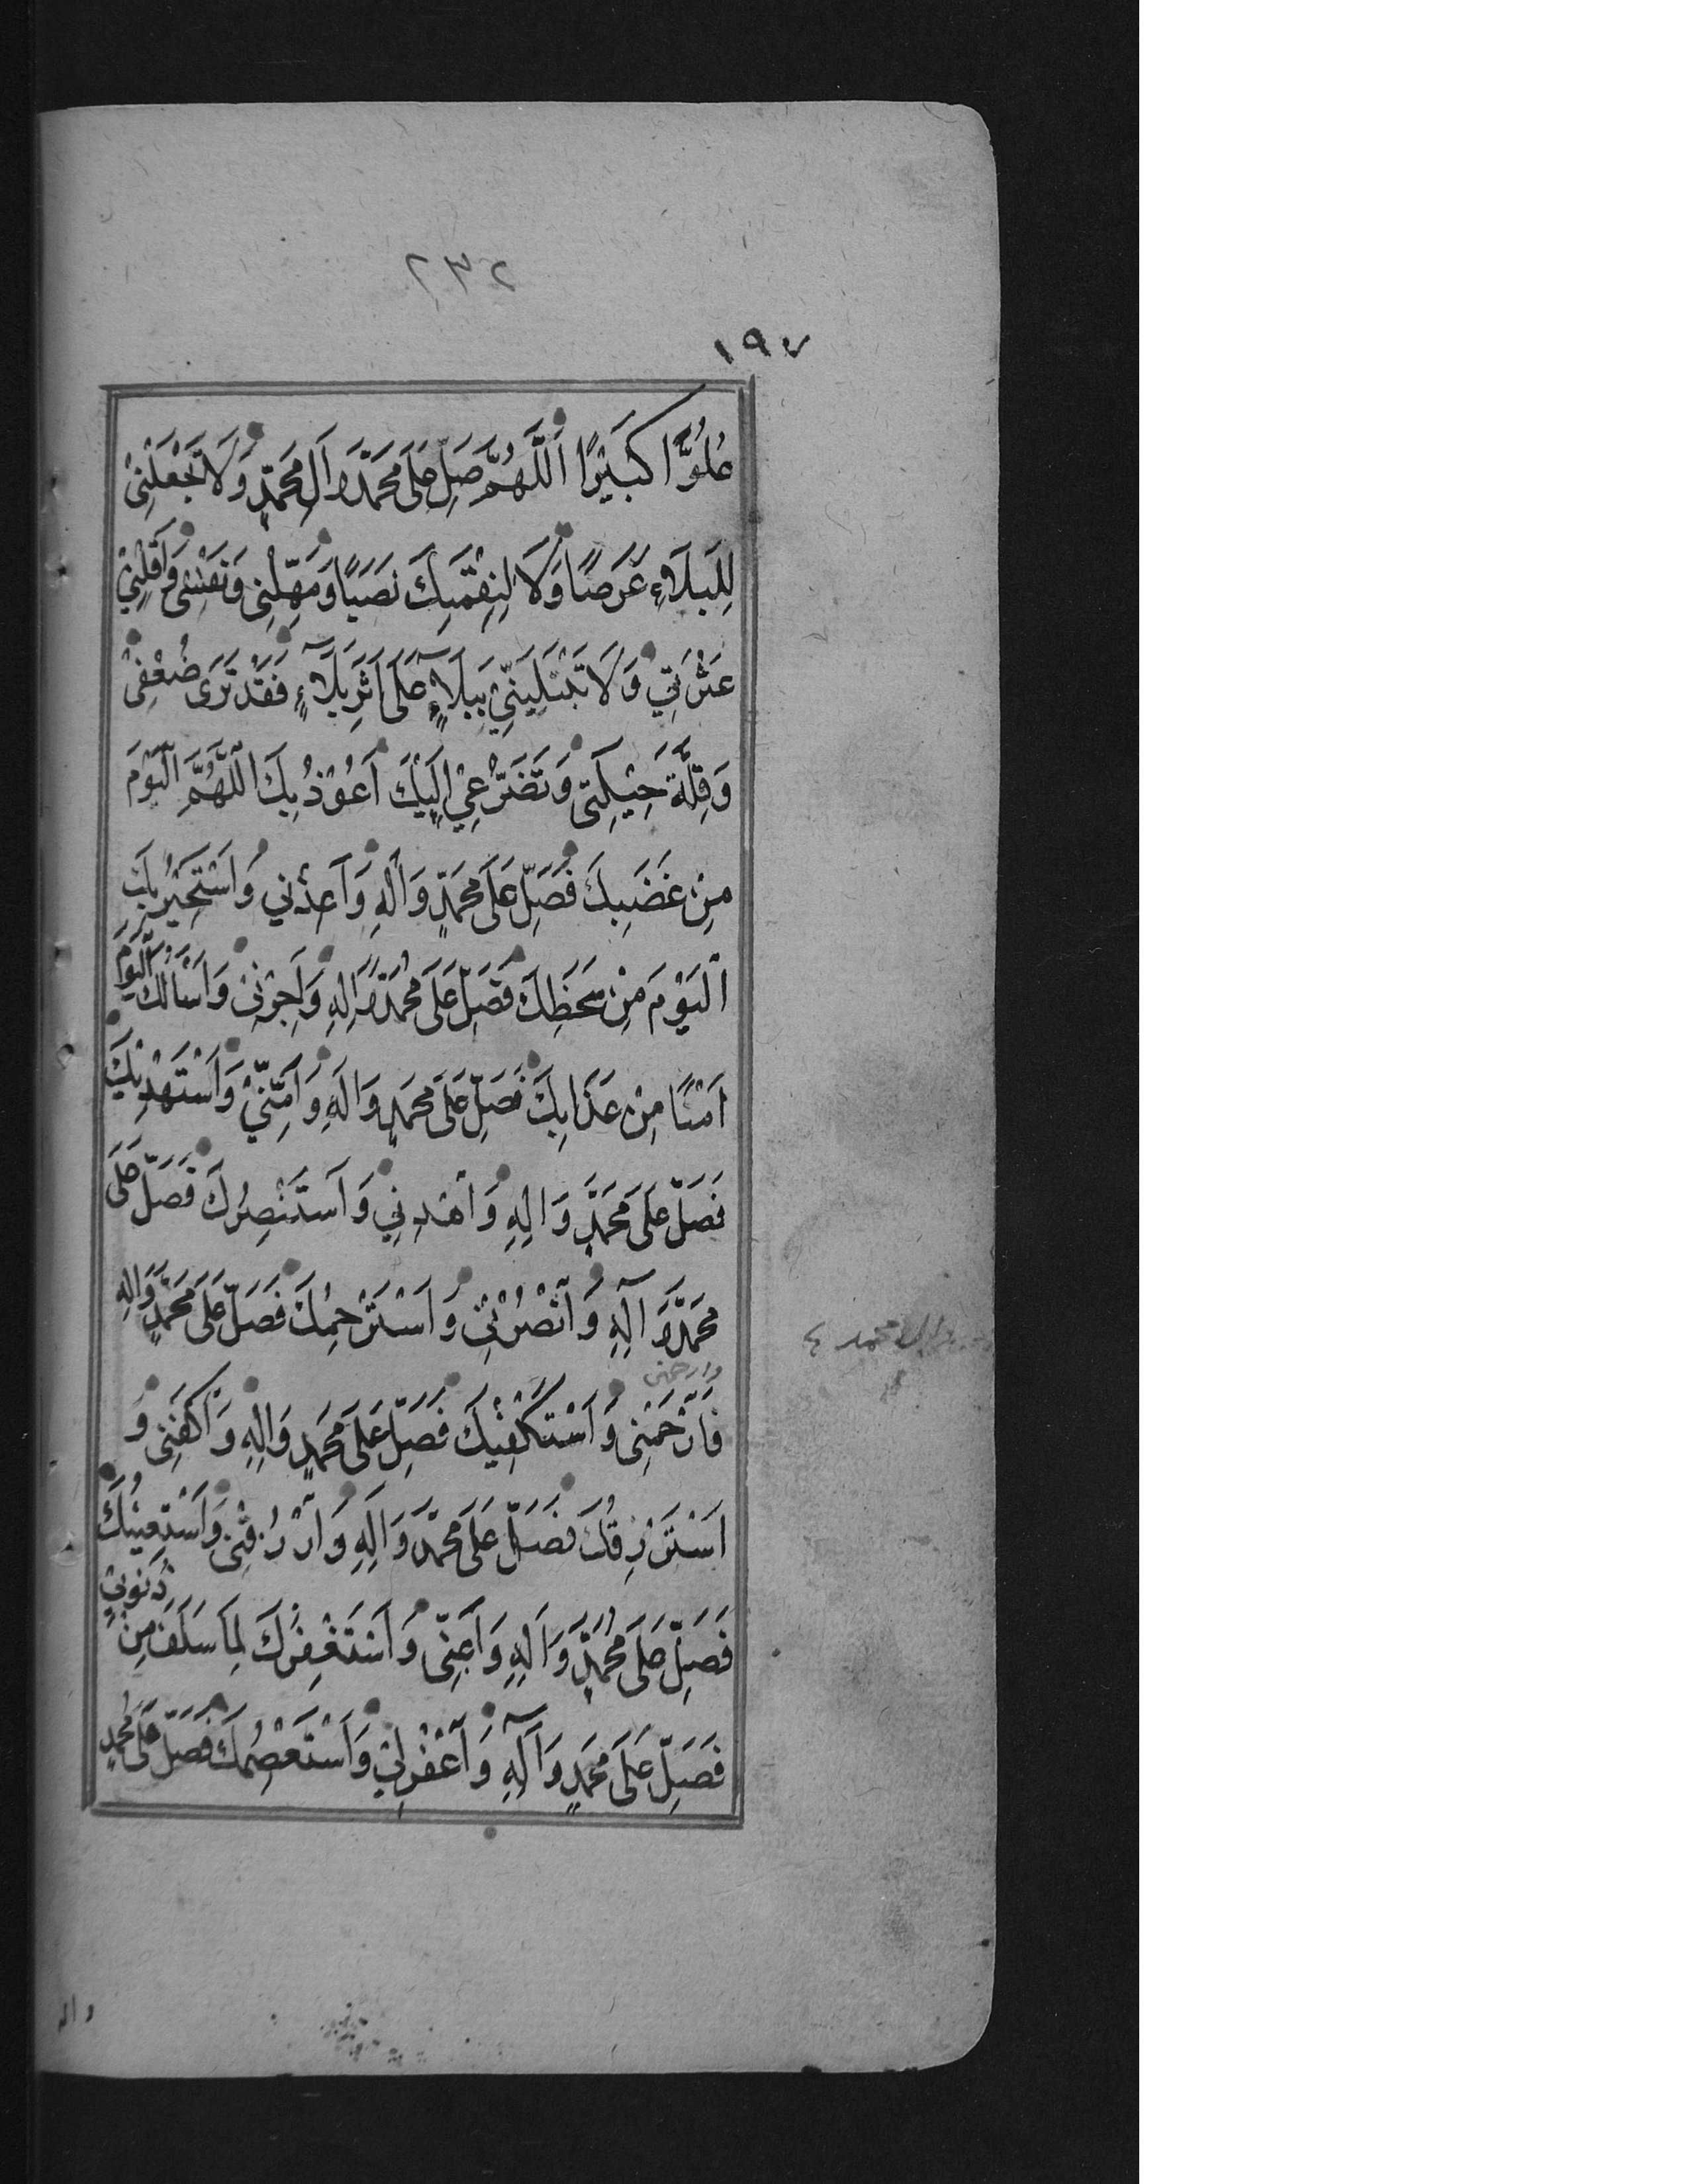 ٢٣٢
١٩٧
عُلُوًّا كَبَيْرًا اَللّهُمَّ صَلِّ عَلَى مُحَمَّدٍ وَ اَلِ مُحَمَّدٍ وَ لَا تَجْعَلْنِىْ
لِلْبَلَاءِ غَرَضًا وَ لَا لِنِقْمَتِكَ نَصَبًا وَ مَهِّلْنِى وَ نَفِّسْنِى وَ اَقِلْنِىْ
عَثْرَتِي وَ لَا تَبْتَلِيَنِّيْ بِبَلَاءٍ عَلَى اَثَرِ بَلَاءٍ فَقَدْ تَرَى ضَعْفِىْ
وَ قِلَّةَ حِيْلَتِى وَ تَضَرُّعِيْ اِلَيْكَ اَعُوْذُ بِكَ اللَّهُمَّ الْيَوْمَ
مِنْ غَضَبِكَ فَصَلِّ عَلَى مُحَمَّدٍ وَ الِهِ وَ اَعِذْنِي وَ اَسْتَجِيْرُ بِكَ
اَلْيَوْمَ مِنْ سَخَطِكَ فَصَلِّ عَلَى مُحَمَّدٍ وَ الِهِ وَ اَجِرْنِىْ وَ اَسْأَلُكَ الْيَوْمَ
اَمْنًا مِنْ عَذَابِكَ فَصَلِّ عَلَى مُحَمَّدٍ وَ الِهِ وَ اَمِنِّىْ وَ اَسْتَهْدِيْكَ
فَصَلِّ عَلَى مُحَمَّدٍ وَ الِهِ وَ اهْدِنِي وَ اَسْتَنْصِرُكَ فَصَلِّ عَلَى
مُحَمَّدٍ وَ آلِهِ وَ انْصُرْنِىْ وَ اَسْتَرْحِمُكَ فَصَلِّ عَلَى مُحَمَّدٍ وَ الِهِ
وال محمد ٤
وارحمنى
فَارْحَمْنِى وَ اَسْتَكْفِيْكَ فَصَلِّ عَلَى مُحَمَّدٍ وَ الِهِ وَ اكْفِنِى وَ
اَسْتَرْزِقُكَ فَصَلِّ عَلَى مُحَمَّدٍ وَ الِهِ وَ ارْزُقْنِىْ وَ اَسْتَعِيْنُكَ
فَصَلِّ عَلَى مُحَمَّدٍ وَ الِهِ وَ اَعِنِّى وَ اَسْتَغْفِرُكَ لِمَا سَلَفَ مِنْ ذُنُوْبِيْ
فَصَلِّ عَلَى مُحَمَّدٍ وَ آلِهِ وَ اغْفِرْلِىْ وَ اَسْتَعْصِمُكَ فَصَلِّ عَلَى مُحَمَّدٍ
واله